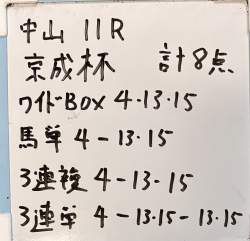 中山 11R
京成杯 計8点
ワイドBOX 4・13・15
馬単 4-13・15
3連複 4-13-15
3連単 4-13・15-13・15